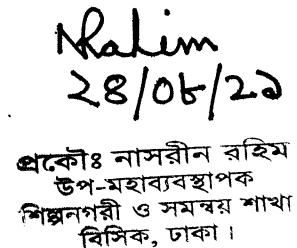 Nhalim
২৪/০৮/২১
প্রকৌঃ নাসরীন রহিম
উপ-মহাব্যবস্থাপক
শিল্পনগরী ও সমন্বয় শাখা
বিসিক, ঢাকা।